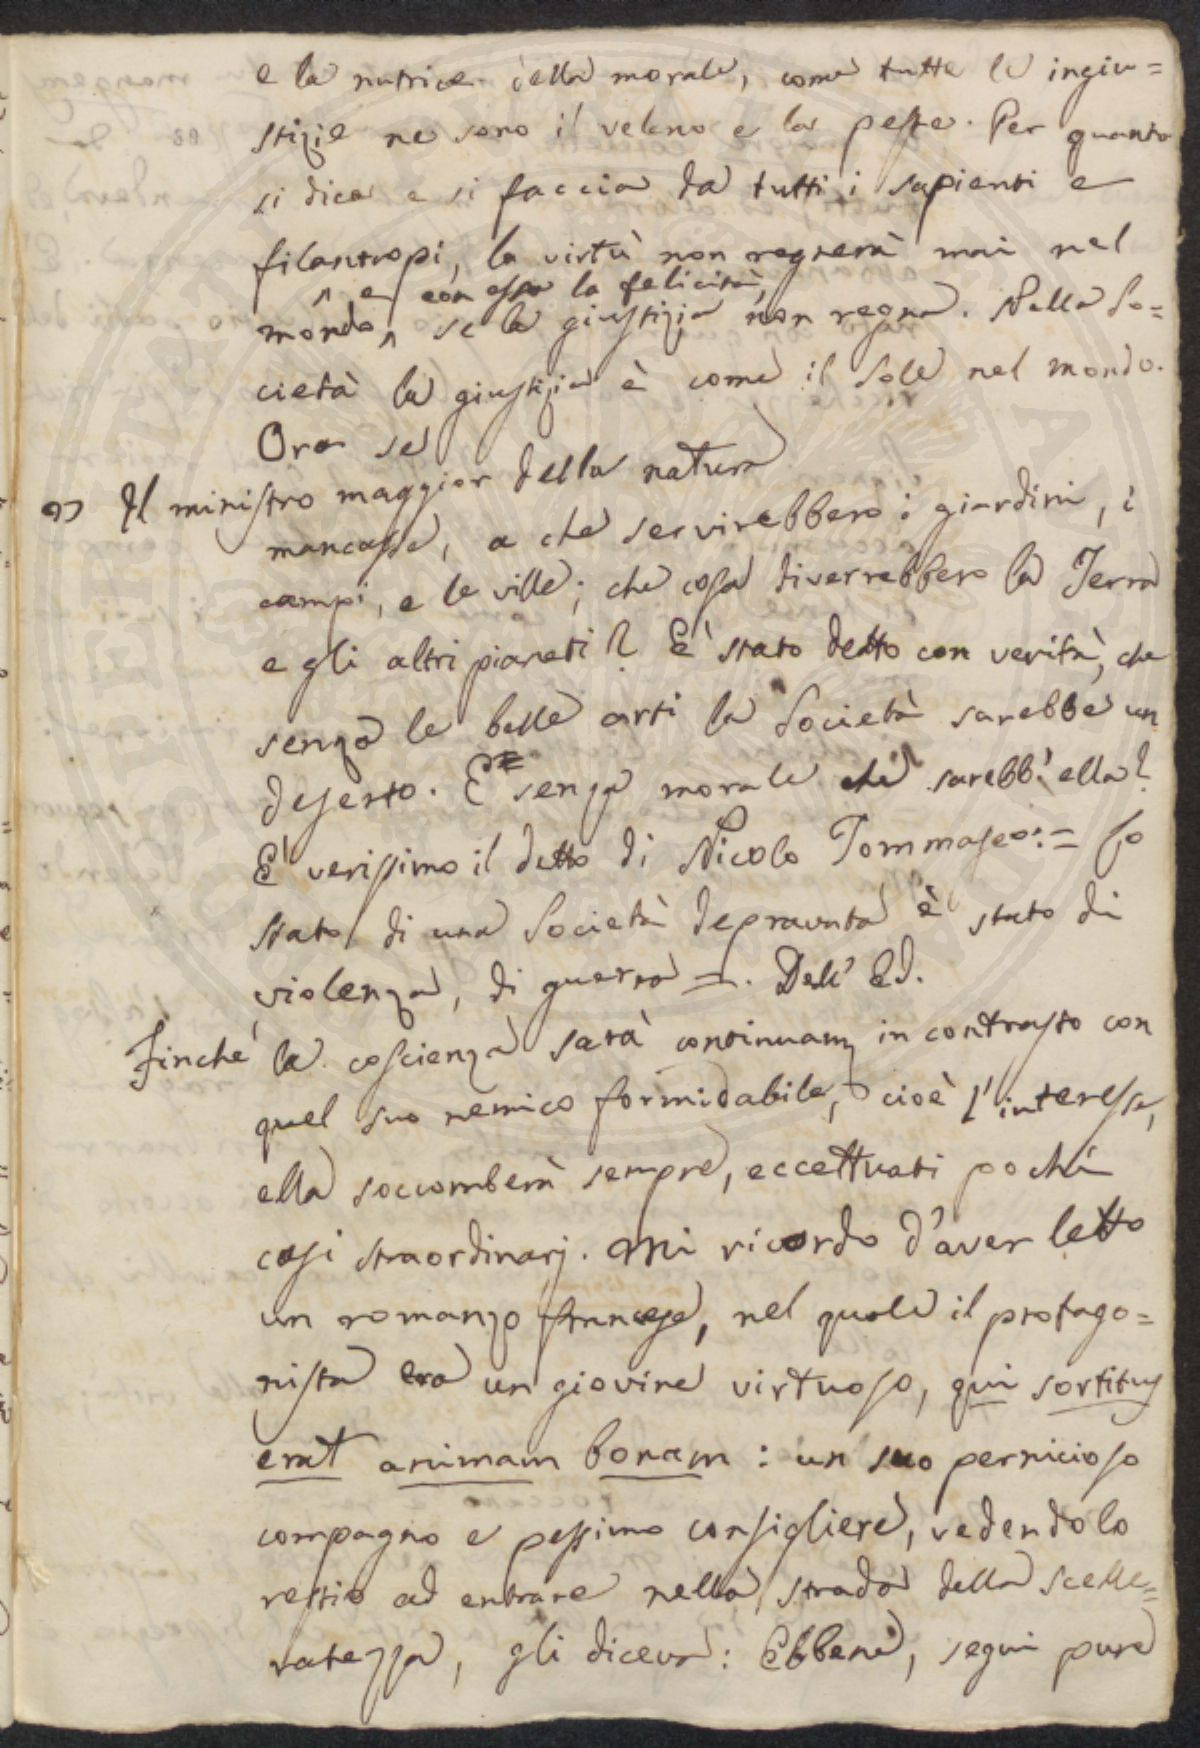 e la nutrice della morale, come tutte le ingiu=
stizie ne sono il veleno e la peste. Per quanto
si dica e si faccia da tutti i sapienti e
filantropi, la virtù non regnerà mai nel
^ e con essa la felicità,
mondo ^ se la giustizia non regna. Nella So=
cietà la giustizia è come il Sole nel mondo.
Ora se
" Il ministro maggior della natura
mancasse, a che servirebbero i giardini, i
campi, e le ville; che cosa diverrebbero la Terra
e gli altri pianeti? E' stato detto con verità, che
senza le belle arti la Società sarebbe un
deserto. E senza morale che sarebb' ella?
E' verissimo il detto di Nicolo Tommaseo: = Lo
stato di una Società depravata è stato di
violenza, di guerra =. Dell' Ed.
Finché la coscienza sarà continuam. in contrasto con
quel suo nemico formidabile, cioè l'interesse,
ella soccomberà sempre, eccettuati pochi
casi straordinarj. Mi ricordo d'aver letto
un romanzo francese, nel quale il protago=
nista era un giovine virtuoso, qui sortitus
erat animam bonam: un suo pernicioso
compagno e pessimo consigliere, vedendolo
restio ad entrare nella strada della scelle=
ratezza, gli diceva: Ebbene, segui pure